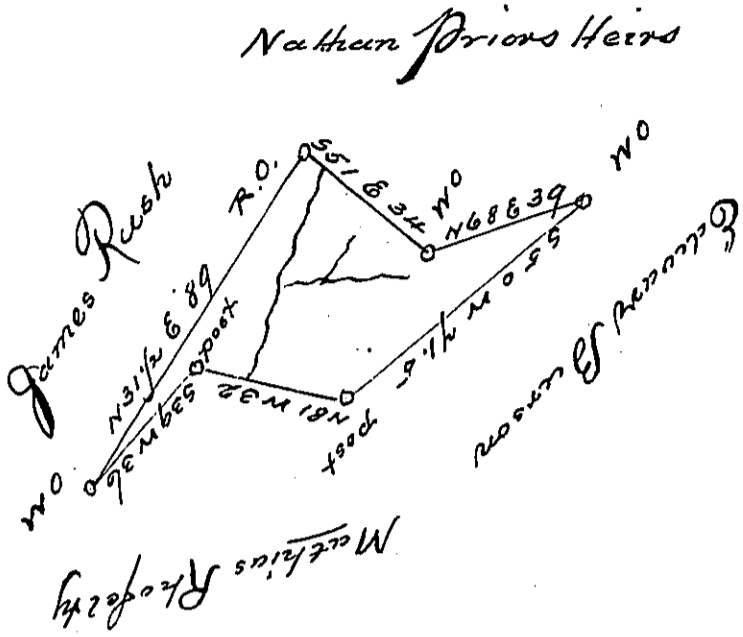 Nathan Priors Heirs
James Rush
R.O.
S51 E 34
WO
N68 E 39
WO
Edward Burson
S50 W 71.5
post
N81 W 32
post
S39 W 36
N31 1/2 E 89
WO
Mathias